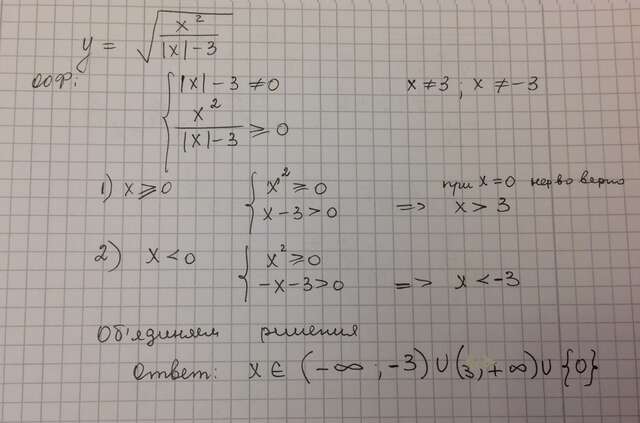 y = √(x²/(|x|-3))
ООФ: { |x|-3 ≠ 0   x ≠ 3 ; x ≠ -3
x²/(|x|-3) ≥ 0
1) x ≥ 0   { x² ≥ 0   при x = 0 нерво верно
x-3 > 0   => x > 3
2) x < 0   { x² ≥ 0
-x-3 > 0   => x < -3
Об'единяем решения
Ответ: x ∈ (-∞ ; -3) ∪ (3, +∞) ∪ {0}